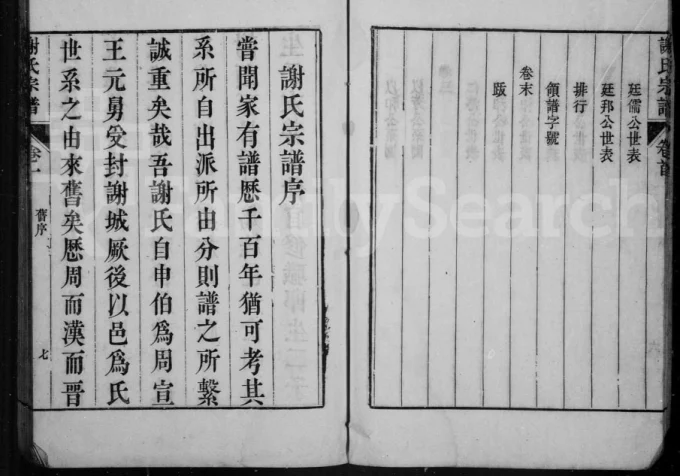 謝氏宗譜
卷首
廷儒公世表
廷邦公世表
排行
領譜字號
卷末
跋
謝氏宗譜序
嘗聞家有譜歷千百年猶可考其
系所自出派所由分則譜之所繫
誠重矣哉吾謝氏自申伯為周宣
王元舅受封謝城厥後以邑為氏
世系之由來舊矣歷周而漢而晉
謝氏宗譜
卷一
舊序
七
FamilySearch